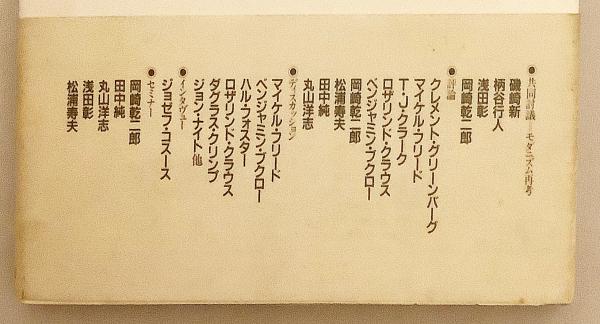 ●共同討議 モダニズム再考
磯崎新
柄谷行人
浅田彰
岡﨑乾二郎
●評論
クレメント・グリーンバーグ
マイケル・フリード
T・J・クラーク
ロザリンド・クラウス
ベンジャミン・ブクロー
岡﨑乾二郎
松浦寿夫
田中純
丸山洋志
●ディスカッション
マイケル・フリード
ベンジャミン・ブクロー
ハル・フォスター
ロザリンド・クラウス
ダグラス・クリンプ
ジョン・ナイト他
●インタヴュー
ジョセフ・コスース
●セミナー
岡﨑乾二郎
田中純
丸山洋志
浅田彰
松浦寿夫